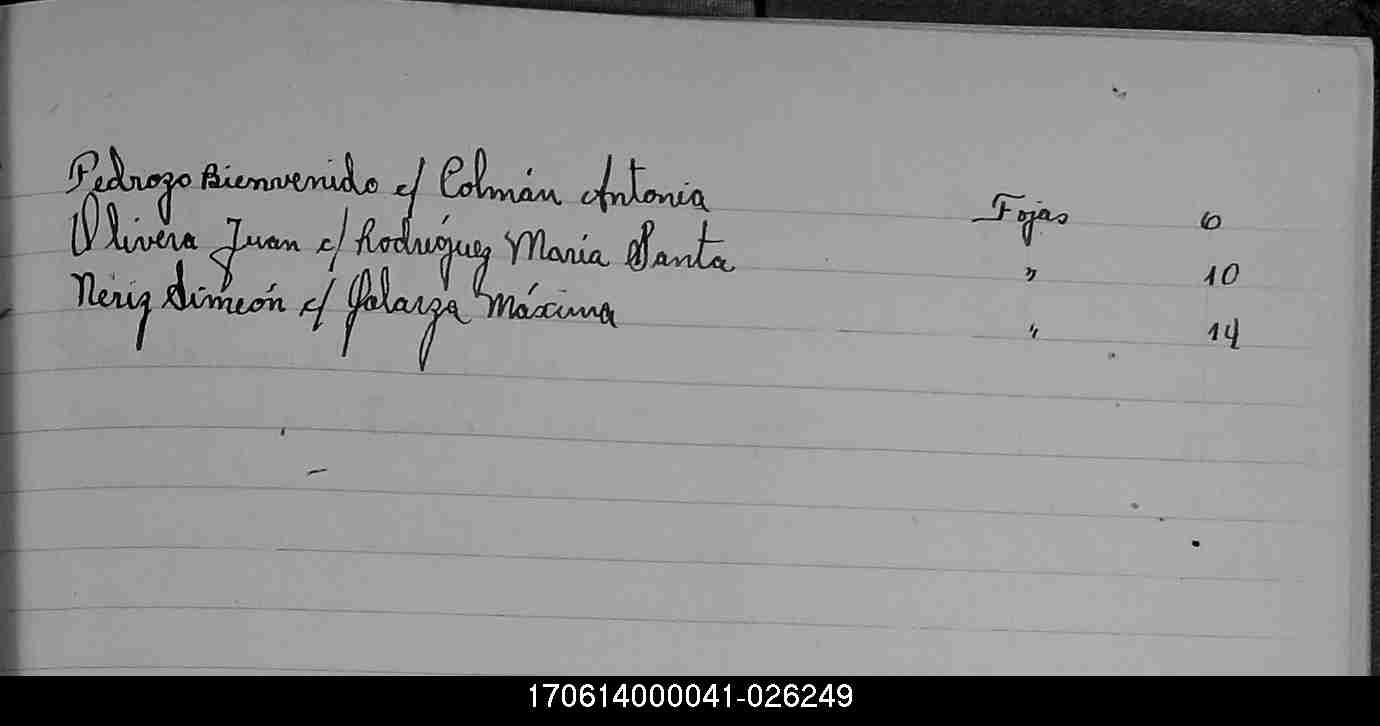 Pedrozo Bienvenido c/ Colmán Antonia Fojas 6
Olivera Juan c/ Rodríguez María Santa " 10
Neriz Simeón c/ Galarza Máxima " 14
170614000041-026249